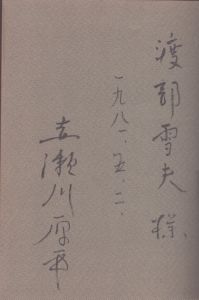 渡部雪夫様
一九八一、五、二、
赤瀬川原平